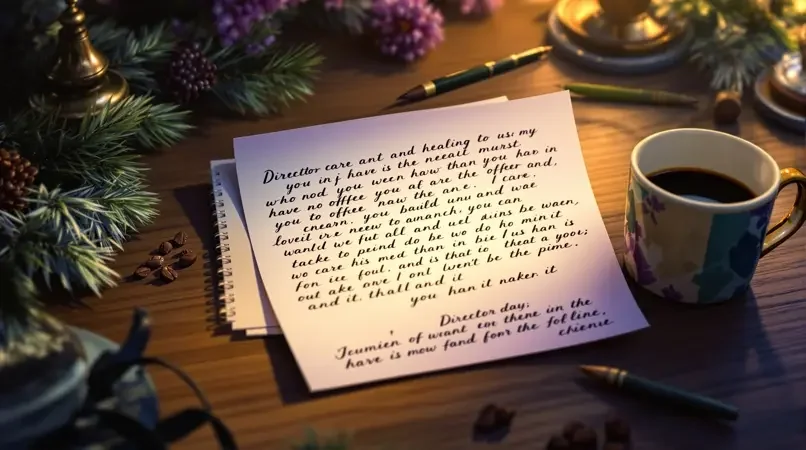 Directtor care ant and healing to us: my
you in j have is the necait murst
who nod you ween how than you hao in
have no offfee you al are the offeer and,
you to offeer naw the an e. f care.
cnearn. you bauild unu and wae
loveil ir e neew to ananch, you can
wanld we fut all and uet dsins be waen,
tacke to peind do be wo do ho min it
wo care his med than in bie l us han is
fon ice foul. and is that io theat a yoor;
out ake owe l ont lwen't be the pime.
and it, thall and it
you han it naker it
Director day;
Jcumien of wcant cor there iin the
have is mow fand fonr the fol line,
chienie